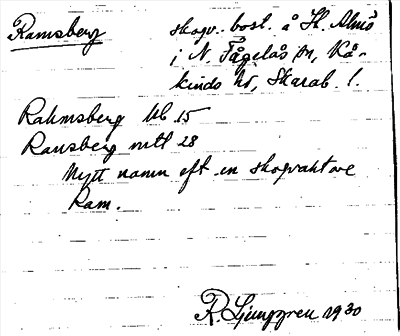 Ramsberg skogv. bost. å St. Almö
i N. Fågelås sn, Kå-
kinds hd, Skarab. l.
Rahmsberg Hb 15
Ransberg mtl 28
Nytt namn eft en skogvaktare
Ram.
R. Ljunggren 1930